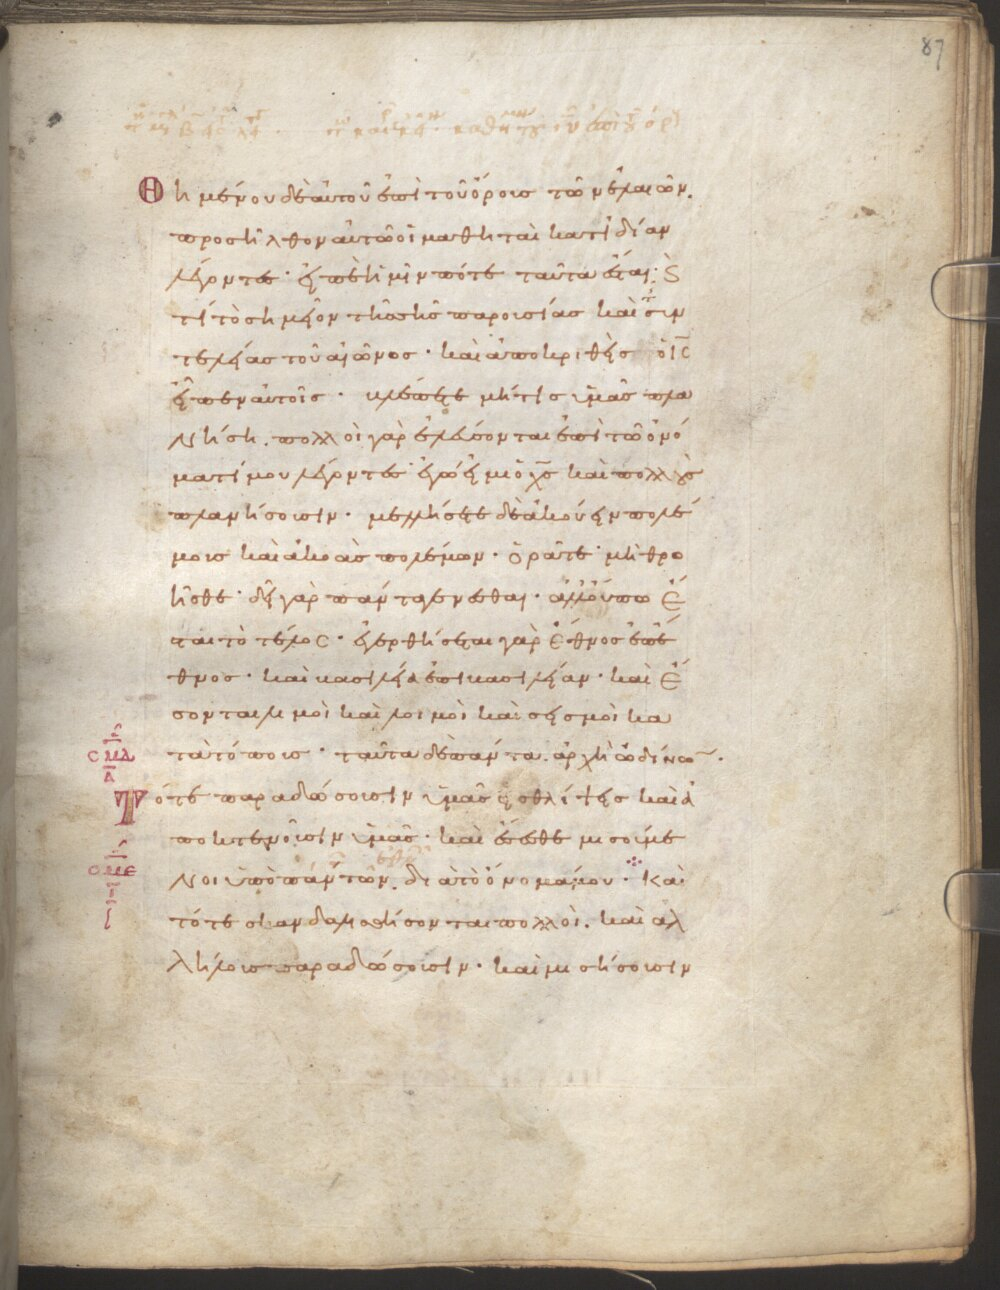 87
Θημένου δὲ αὐτοῦ ἐπὶ τοῦ ὄρους τῶν ἐλαιῶν.
προσῆλθον αὐτῶ οἱ μαθηταὶ κατ ἰδίαν
λέγοντες· εἰπὲ ἡμῖν πότε ταῦτα ἔσται· ϗ
τί τὸ σημεῖον τῆς σῆς παρουσίας καὶ τῆς συν
τελείας τοῦ αἰῶνος· καὶ ἀποκριθεὶς ὁ ις
εἶπεν αὐτοῖς· βλέπετε μήτις ὑμᾶς πλα
νήση. πολλοὶ γὰρ ἐλεύσονται ἐπὶ τῶ ὀνό
ματί μου λέγοντες· ἐγώ εἰμι ὁ χς καὶ πολλοὺς
πλανήσουσιν· μελλήσετε δὲ ἀκούειν πολέ
μους καὶ ἀκοὰς πολέμων· ὁρᾶτε· μὴ θρο
ῆσθε· δεῖ γὰρ πάντα γενέσθαι· ἀλλ οὔπω ἐ
σται τὸ τέλος· ἐγερθήσεται γὰρ ἔθνος ἐπὶ ἔ
θνος· καὶ βασιλεία ἐπὶ βασιλείαν· καὶ ἔ
σονται λιμοὶ καὶ λοιμοὶ καὶ σεισμοὶ κα
σμδ
τὰ τόπους· ταῦτα δὲ πάντα. ἀρχὴ ὠδίνων.
Τότε παραδώσουσιν ὑμᾶς εἰς θλίψεις καὶ ἀ
ποκτενοῦσιν ὑμᾶς· καὶ ἔσεσθε μισούμε
σμε
νοι ὑπὸ πάντων ἐθνῶν. διὰ τὸ ὄνομά μου· Καὶ
τότε σκανδαλισθήσονται πολλοὶ. καὶ ἀλ
λήλους παραδώσουσιν· καὶ μισήσουσιν